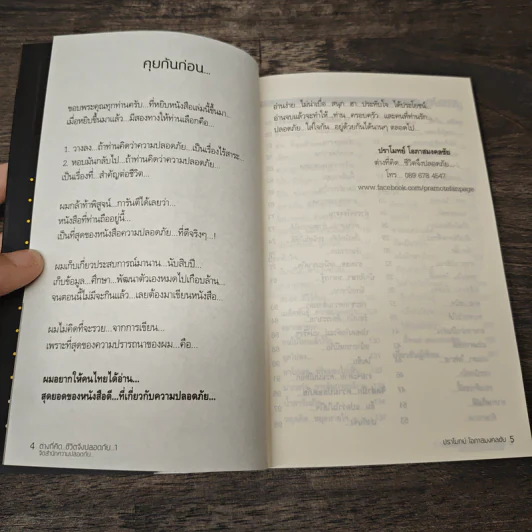 คุยกันก่อน...
ขอบพระคุณทุกท่านครับ...ที่หยิบหนังสือเล่มนี้ขึ้นมา...
เมื่อหยิบขึ้นมาแล้ว...มีสองทางให้ท่านเลือกคือ...
1. วางลง...ถ้าท่านคิดว่าความปลอดภัย...เป็นเรื่องไร้สาระ...
2. หอบมันกลับไป...ถ้าท่านคิดว่าความปลอดภัย...
เป็นเรื่องที่...สำคัญต่อชีวิต...
ผมกล้าท้าพิสูจน์...การันตีได้เลยว่า...
หนังสือที่ท่านถืออยู่นี้...
เป็นที่สุดของหนังสือความปลอดภัย...ที่ดีจริงๆ...!
ผมเก็บเกี่ยวประสบการณ์มานาน...นับสิบปี...
เก็บข้อมูล...ศึกษา...พัฒนาตัวเองหมดไปเกือบล้าน...
จนตอนนี้ไม่มีจะกินแล้ว...เลยต้องมาเขียนหนังสือ...
ผมไม่คิดที่จะรวย...จากการเขียน...
เพราะที่สุดของความปรารถนาของผม...คือ...
ผมอยากให้คนไทยได้อ่าน...
สุดยอดของหนังสือดี...ที่เกี่ยวกับความปลอดภัย...
4 ต่างที่คิด...ชีวิตจึงปลอดภัย...1
จิตสำนึกความปลอดภัย...
อ่านง่าย...ไม่น่าเบื่อ...สนุก...ฮา...ประทับใจ...ได้ประโยชน์...
อ่านจบแล้วจะทำให้...ท่าน...ครอบครัว...และคนที่ท่านรัก...
ปลอดภัย...ใส่ใจกัน...อยู่ด้วยกันได้นานๆ ตลอดไป...
ปราโมทย์ โอภาสมงคลชัย
ต่างที่คิด...ชีวิตจึงปลอดภัย...
โทร... 089 678 4547
www.facebook.com/pramotefanpage
ปราโมทย์ โอภาสมงคลชัย 5